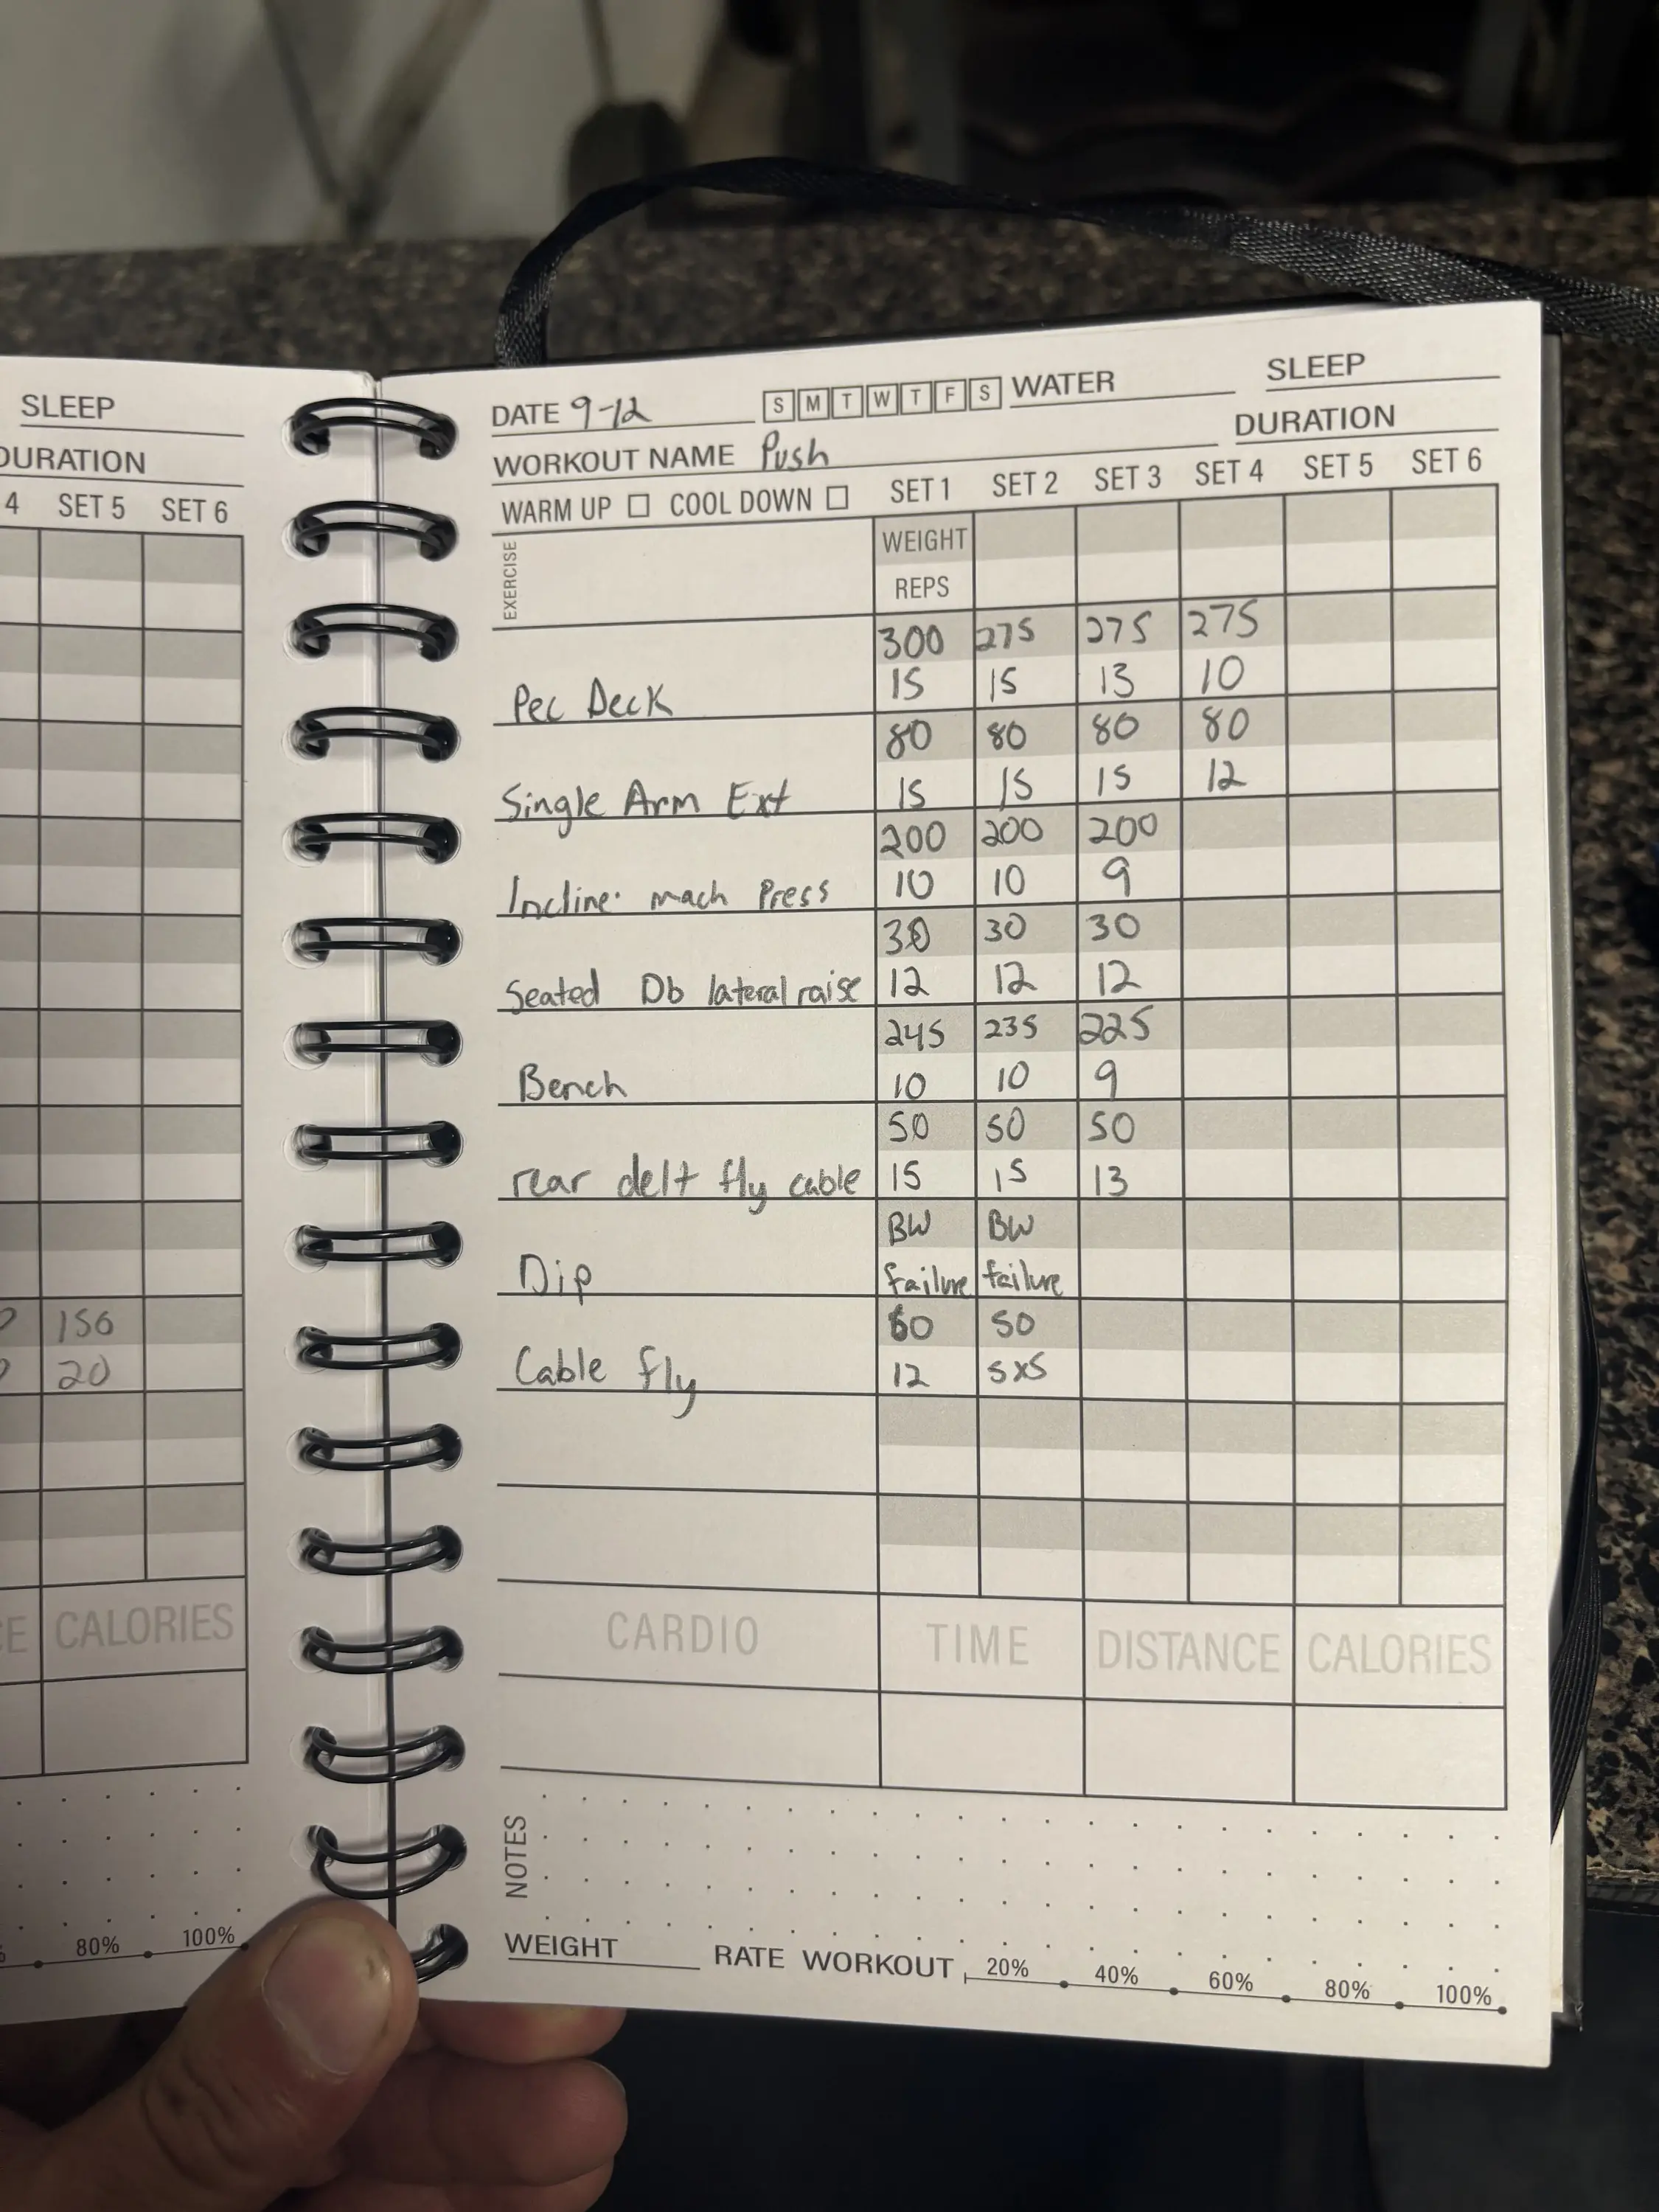 SLEEP
DURATION
4 SET 5 SET 6
156
20
CALORIES
80% 100%
DATE 9-12 S M T W T F S WATER SLEEP
WORKOUT NAME Push DURATION
WARM UP COOL DOWN SET 1 SET 2 SET 3 SET 4 SET 5 SET 6
EXERCISE
WEIGHT
REPS
300 275 275 275
Pec Deck 15 15 13 10
80 80 80 80
Single Arm Ext 15 15 15 12
200 200 200
Incline mach Press 10 10 9
30 30 30
Seated Db lateral raise 12 12 12
245 235 225
Bench 10 10 9
50 50 50
rear delt fly cable 15 15 13
BW BW
Dip failure failure
60 50
Cable fly 12 5x5
CARDIO TIME DISTANCE CALORIES
NOTES
WEIGHT RATE WORKOUT 20% 40% 60% 80% 100%